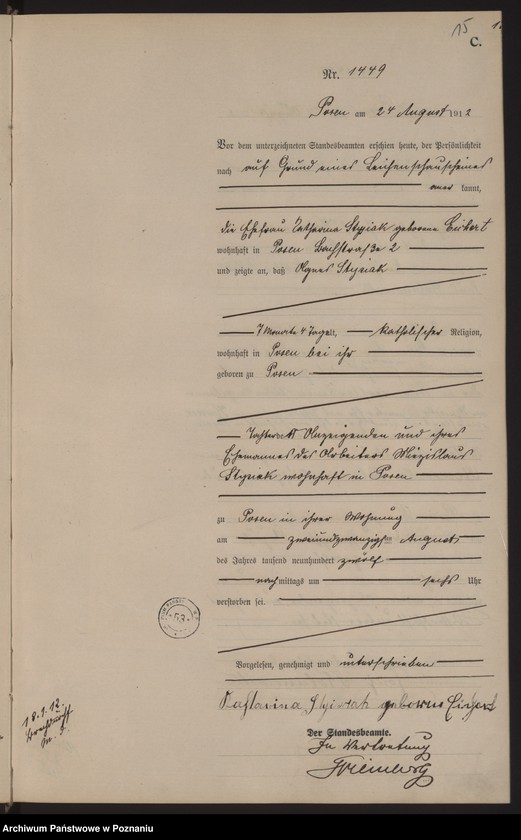 15
C.
Nr. 1449
Posen am 24 August 1912
Vor dem unterzeichneten Standesbeamten erschien heute, der Persönlichkeit
nach auf Grund eines Leichenschauscheines
kannt,
die Ehefrau Katharina Stysiak geborene
wohnhaft in Posen Bachstraße 2
und zeigte an, daß Agnes Stysiak
7 Monate 4 Tage alt, katholischer Religion,
wohnhaft in Posen bei ihr
geboren zu Posen
Tochter der Anzeigenden und ihres
Ehemannes des Arbeiters Miezislaus
Stysiak wohnhaft in Posen
zu Posen in ihrer Wohnung
am zweiundzwanzigsten August
des Jahres tausend neunhundert zwölf
nachmittags um sechs Uhr
verstorben sei.
Vorgelesen, genehmigt und unterschrieben
Katharina Stysiak geborene
Der Standesbeamte.
In Vertretung
53
Archiwum Państwowe w Poznaniu